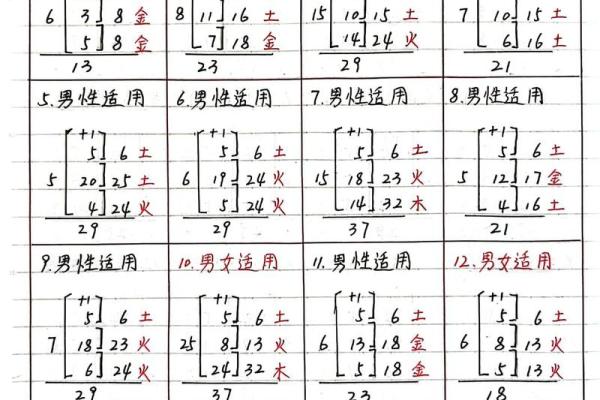 6 3 8 金 8 11 16 土 15 10 15 土 7 10 15 土
5 8 金 7 18 金 14 24 火 6 16 土
13 23 29 21
5.男性适用 6.男性适用 7.男性适用 8.男性适用
+1 +1 +1 +1
5 6 土 5 6 土 5 6 土 5 6 土
5 20 25 土 6 19 24 火 15 18 23 火 5 12 17 金
4 24 火 5 24 火 14 32 木 4 16 土
29 29 37 21
9.男性适用 10.男女适用 11.男性适用 12.男女适用
+1 +1 +1 +1
5 6 土 5 6 土 5 6 土 5 6 土
7 18 23 火 25 8 13 火 6 13 18 金 6 8 13 火
6 24 火 24 32 木 5 18 金 5 13 火
29 37 23 18